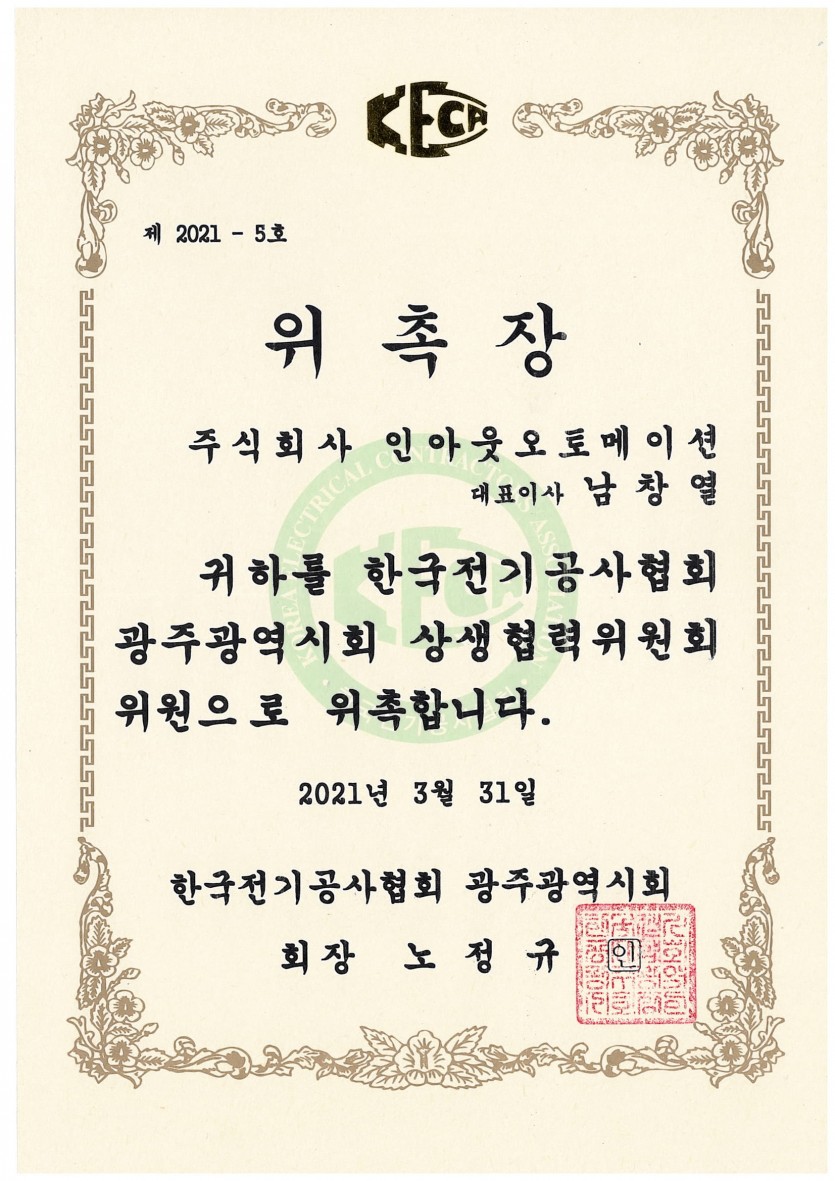 KECA
제 2021 - 5호
위 촉 장
주식회사 인아웃오토메이션
대표이사 남창열
귀하를 한국전기공사협회
광주광역시회 상생협력위원회
위원으로 위촉합니다.
2021년 3월 31일
한국전기공사협회 광주광역시회
회장 노정규
인
KOREA ELECTRICAL CONTRACTORS ASSOCIATION
KECA